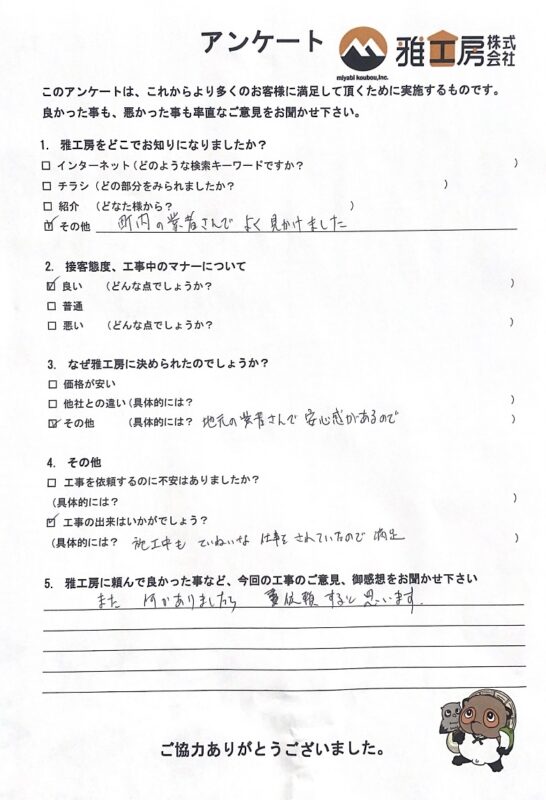 アンケート
雅工房株式会社
miyabi koubou,inc.
このアンケートは、これからより多くのお客様に満足して頂くために実施するものです。
良かった事も、悪かった事も率直なご意見をお聞かせ下さい。
1. 雅工房をどこでお知りになりましたか？
□ インターネット（どのような検索キーワードですか？ ）
□ チラシ（どの部分をみられましたか？ ）
□ 紹介 （どなた様から？ ）
☑ その他 町内の業者さんで よく見かけました
2. 接客態度、工事中のマナーについて
☑ 良い （どんな点でしょうか？ ）
□ 普通
□ 悪い （どんな点でしょうか？ ）
3. なぜ雅工房に決められたのでしょうか？
□ 価格が安い
□ 他社との違い（具体的には？ ）
☑ その他 （具体的には？ 地元の業者さんで 安心感があるので ）
4. その他
□ 工事を依頼するのに不安はありましたか？
（具体的には？ ）
☑ 工事の出来はいかがでしょう？
（具体的には？ 施工中も ていねいな 仕事を されていたので 満足 ）
5. 雅工房に頼んで良かった事など、今回の工事のご意見、御感想をお聞かせ下さい
また 何かありましたら 依頼すると 思います.
ご協力ありがとうございました。